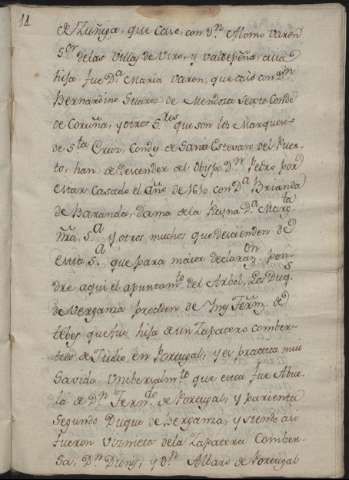 11
de Zuñiga, que Casó, con Dn. Alonso Varon
Sor. de las Villas de Viso, y Valdepeñas cuia
hija fue Da. Maria Varon, que casó con Dn.
Bernardino Suarez de Mendoza Sexto Conde
de Coruña, y otros Sres que son los Marqueses
de Sta. Cruz, Condes de Santa Estevan del Puer-
to, han de Descender del Obispo Dn. Pedro por
estar Casado el año de 1630 con Da. Brianda
de Baranda, dama de la Reyna Da. Margta.
Ñra. Sa. y otros muchos que descienden de
esta Sa. que para maior declarazon pon-
dre aqui el apuntamto. del Arbol, Los Duqs.
de Verganza proceden de Ynes Fern. de
Esteves que fue hija de un Zapatero comber-
tido de Judio, en Portugal, y es practica mui
Savida Unibersalmte. que esta fue Abue-
la de Dn. Ferndo. de Portugal, y pariente
Segundo Duque de Berganza, y siendo asi
fueron Visnietos de la Zapatera Comber-
sa, Dn. Dionis, y Dn. Albaro de Portugal